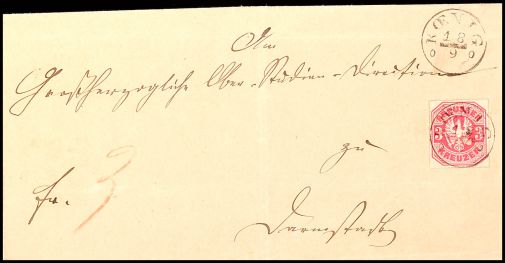 An
KŒNIG
18
9
Großherzogliche Ober-Studien-Direction
PREUSSEN
3 3
KREUZER
zu
fr. 3
Darmstadt